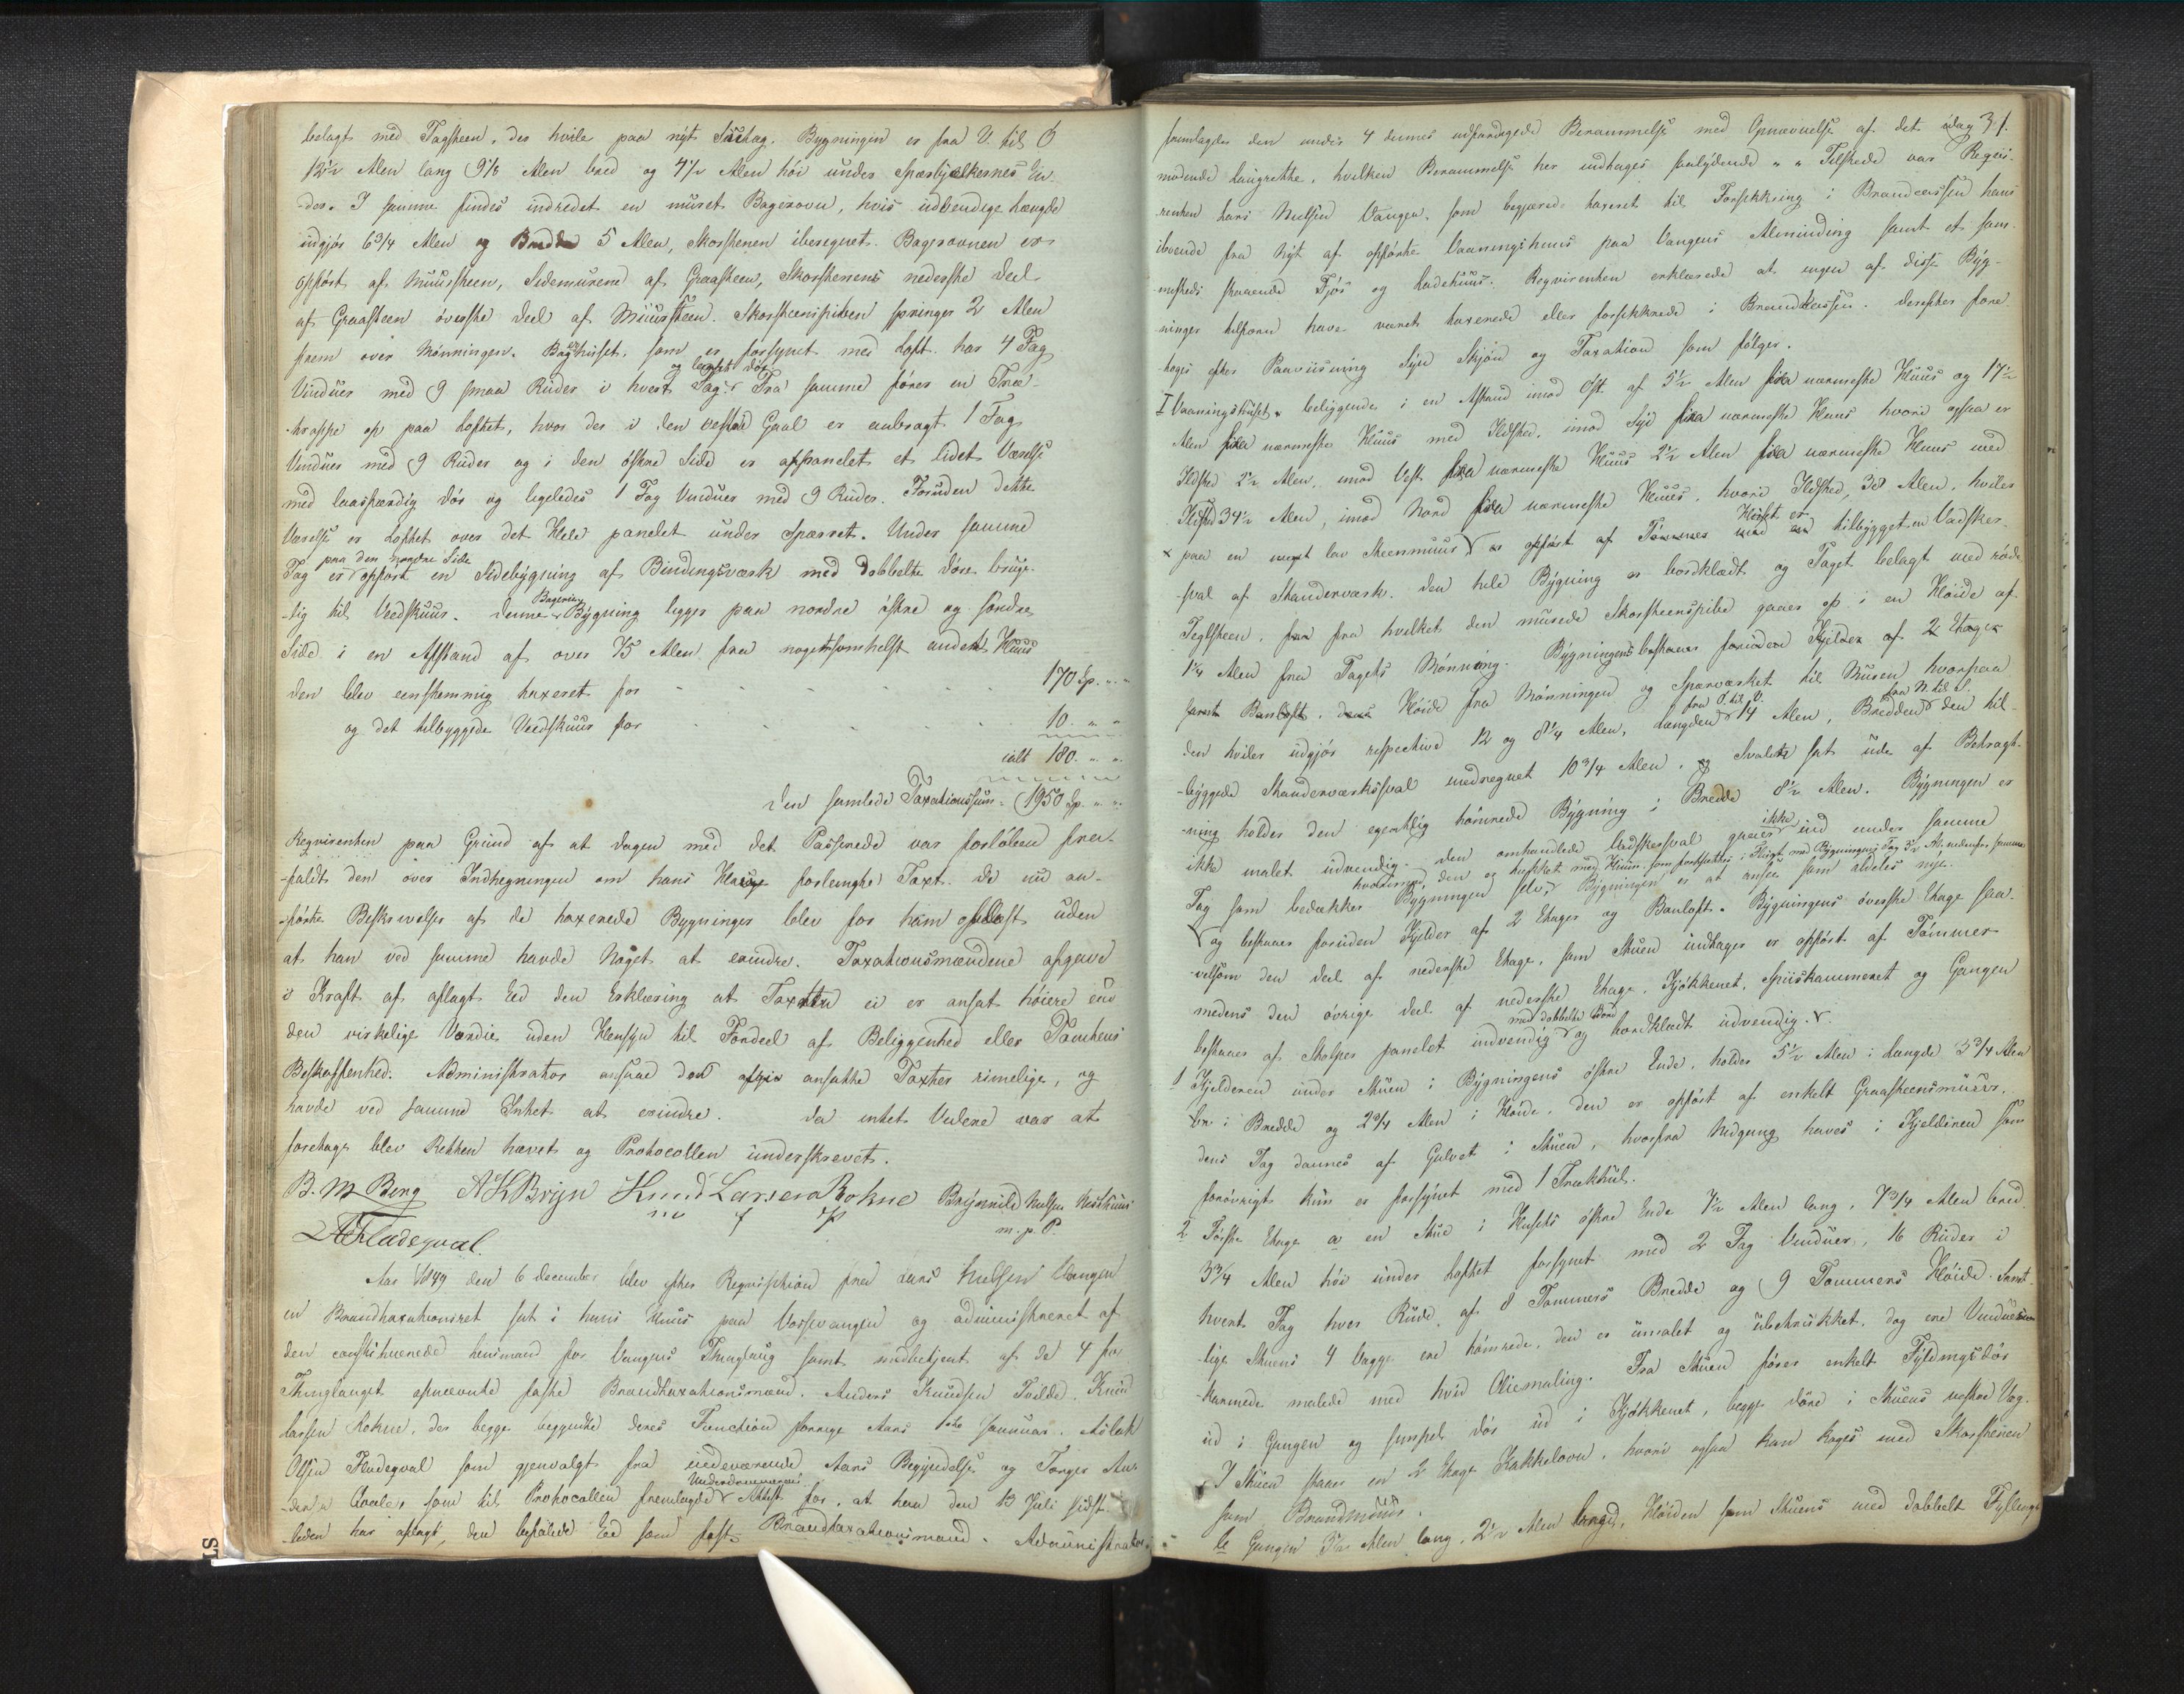 belagt med Tagsteen, der hvile paa nyt Suttag. Bygningen er fra V. til Ø
12½ Alen lang 9⅛ Alen bred og 4½ Alen høi under Spærbjelkernes En-
der. I samme findes indredet en muret Bagerovn, hvis udvendige Længde
udgjør 6¾ Alen og Bredde 5 Alen, Skorstenen iberegnet. Bagerovnen er
opført af Muursteen, Sidemurene af Graasteen, Skorstenens nederste Deel
af Graasteen øverste Deel af Muursteen. Skorsteenspiben springer 2 Alen
frem over Mønningen. Bagerhuset, som er forsynet med Loft har 4 Fag
og laaset Dør
Vinduer med 9 smaa Ruder i hvert Fag. Fra samme fører en Træ-
trappe op paa Loftet, hvor der i den vestre Gavl er anbragt 1 Fag
Vinduer med 9 Ruder og i den østre Side er afpanelet et lidet Værelse
med laasfærdig Dør og ligeledes 1 Fag Vinduer med 9 Ruder. Foruden dette
Værelse er Loftet over det Hele panelet under Spærret. Under samme
paa den nordre Side
Tag er opført en Sidebygning af Bindingsværk med dobbelte Døre brüge-
lig til Veedskuur. Denne Bagerie Bygning ligger paa nordre østre og søndre
Side i en Afstand af over 75 Alen fra nogetsomhelst andet Huus
den blev eenstemmig taxeret for - - - - - 170 Sp. " "
og det tilbyggede Veedskuur for - - - - - 10. " "
ialt 180. " "
Den samlede Taxationssum = 1950 Sp. " "
Reqvirenten paa Grund af at Dagen med det Passerede var forløben fra-
faldt den over Indhegningen om hans Hauge forlangte Taxt. De nu an-
førte Beskrivelser af de taxerede Bygninger blev for ham oplæst uden
at han ved samme havde Noget at erindre. Taxationsmændene afgave
i Kraft af aflagt Eed den Erklæring at Taxten ei er ansat høiere end
den virkelige Værdie uden Hensyn til Fordeel af Beliggenhed eller Tomtens
Beskaffenhed. Administrator ansaae den ansatte Taxter rimelige, og
havde ved samme Intet at erindre. Da intet Videre var at
foretage blev Retten hævet og Protocollen underskrevet.
B. M Berg A K Bryn Knud Larsen Rokne Brynnild Nielsen Nesthuus
m. p. P.
A Fladeqval.
Aar 1849 den 6 December blev efter Reqvisition fra Lars Nielsen Vangen
en Brandtaxationsret sat i hans Huus paa Vossevangen og administreret af
den constituerede Lensmand for Vangens Thinglaug samt medbetjent af de 4 for
Thinglauget opnævnte faste Brandtaxationsmænd. Anders Knudsen Tvilde. Knud
Larsen Rokne, der begge begyndte deres Function forrige Aars 1ste Januar. Aslak
Olsen Fladeqval som gjenvalgt fra indeværende Aars Begyndelse og Torger An-
Underdommerens
ders som til Protocollen fremlagde Attest for, at han den 13 Juli sidst-
leden har aflagt den befalede Eed som fast Brandtaxationsmand. Administrator
31.
fremlagde den under 4 dennes udfærdigede Berammelse med Opnævnelse af det idag
mødende Laugrette, hvilken Berammelse her indtages saalydende " " Tilstede var Reqvi-
renten Lars Nielsen Vangen, som begjærede taxeret til Forsikkring i Brandcassen hans
iboende fra Nyt af opførte Vaaningshuus paa Vangens Alminding samt et sam-
mesteds staaende Fjøs og Ladehuus. Reqvirenten erklærede at ingen af disse Byg-
ninger tilforn have været taxerede eller forsikkrede i Brandkassen. Derefter fore-
toges efter Paaviisning Syn Skjøn og Taxation som følger.
I Vaaningshuset, beliggende i en Afstand imod Øst af 5½ Alen fra nærmeste Huus og 17½
Alen fra nærmeste Huus med Ildsted, imod Syd fra nærmeste Huus hvori ogsaa er
Ildsted 2½ Alen, imod Vest fra nærmeste Huus 2½ Alen fra nærmeste Huus med
Ildsted 34½ Alen, imod Nord fra nærmeste Huus, hvori Ildsted, 38 Alen, hviler
Huset er
paa en meget lav Steenmuur er opført af Tømmer med en tilbygget en Vadsker-
sval af Standerværk. Den hele Bygning er bordklædt og Taget belagt med røde
Teglsteen, fra hvilket den murede Skorsteenspibe gaaer op i en Høide af
1¼ Alen fra Tagets Mønning. Bygningens bestaaer foruden Kjelder af 2 Etager
samt Banloft. dens Høide fra Mønningen og Spærværket til Muren hvorpaa
fra Ø. til V. fra N. til S.
den hviler udgjør respective 12 og 8¼ Alen, Længden 14 Alen, Bredden den til-
byggede Standerværkssval medregnet 10¾ Alen. Svalen sat ude af Betragt-
ning holder den egentlig tømrede Bygning i Bredde 8½ Alen. Bygningen er
ikke
ikke malet udvendig. Den omhandlede Vadskersval gaaer ind under samme
Tag som bedækker Bygningen selv. Bygningen er at ansee som aldeles nye.
og bestaaer foruden Kjelder af 2 Etager og Banloft. Bygningens øverste Etage saa-
velsom den Deel af nederste Etage, som Stuen indtager er opført af Tømmer
medens den øvrige Deel af nederste Etage, Kjøkkenet, Spiiskammeret og Gangen
med dobbelte Bord
bestaaer af Stolper panelet indvendig og bordklædt udvendig.
1 Kjelderen under Stuen i Bygningens østre Ende, holder 5½ Alen i Længde 3¾ Alen
i Bredde og 2¾ Alen i Høide, den er opført af enkelt Graasteensmuur.
dens Tag dannes af Gulvet i Stuen, hvorfra Nedgang haves i Kjelderen som
forøvrigt kun er forsynet med 1 Trækhul.
2 Første Etage a en Stue i Husets østre Ende 7½ Alen lang, 7¾ Alen bred
3¾ Alen høi under Loftet forsynet med 2 Fag Vinduer, 16 Ruder i
hvert Fag hver Rude af 8 Tommers Bredde og 9 Tommers Høide. Samt-
lige Stuens 4 Vægge ere tømrede, den er umalet og ubetrukket, dog ere Vindues-
karmene malede med hvid Oliemaling. Fra Stuen fører enkelt Fyldingsdør
ud i Gangen og simpel Dør ud i Kjøkkenet, begge Døre i Stuens vestre Væg.
I Stuen staaer en 2 Etage Kakkelovn, hvori ogsaa kan koges med Skorstenen
som Brandmuur.
b Gangen Alen lang, 2½ Alen bred, Høiden som Stuens med dobbelt Fyldings